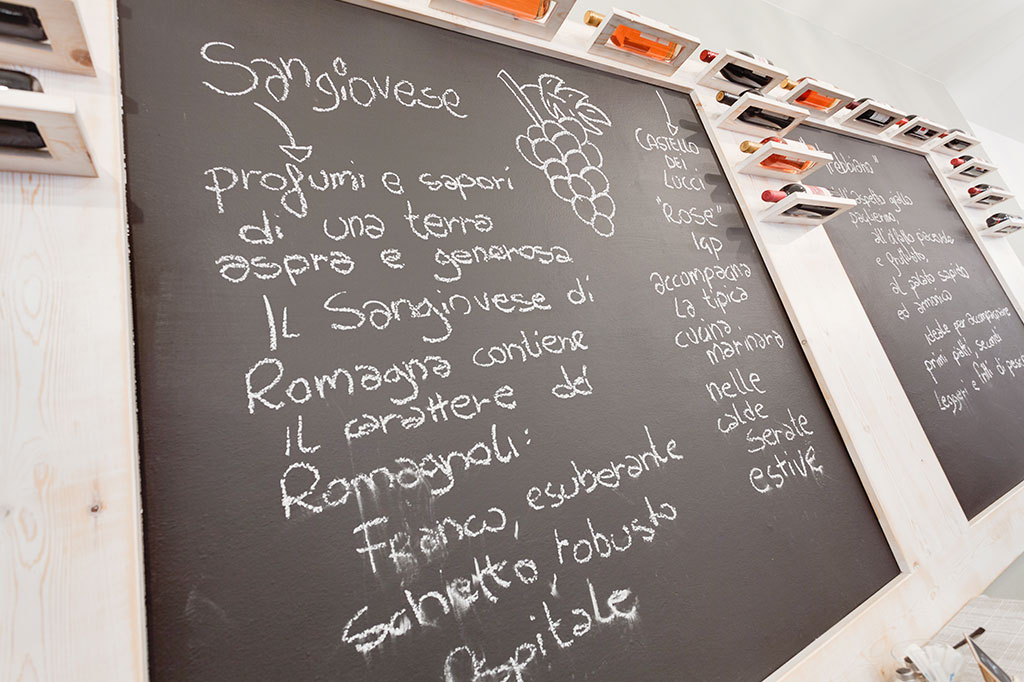 Sangiovese
profumi e sapori
di una terra
aspra e generosa
Il Sangiovese di
Romagna contiene
il carattere dei
Romagnoli:
Franco, esuberante
schietto, robusto
Ospitale
CASTELLO
DEI
LUCCI
"Rosè"
IGP
accompagna
La tipica
cucina
marinara
nelle
calde
serate
estive
Trebbiano"
all'aspetto giallo
paglierino
all'olfatto piacevole
e fruttato,
al palato sapido
ed armonico
ideale per accompagnare
primi piatti, secondi
leggeri e fritti di pesce